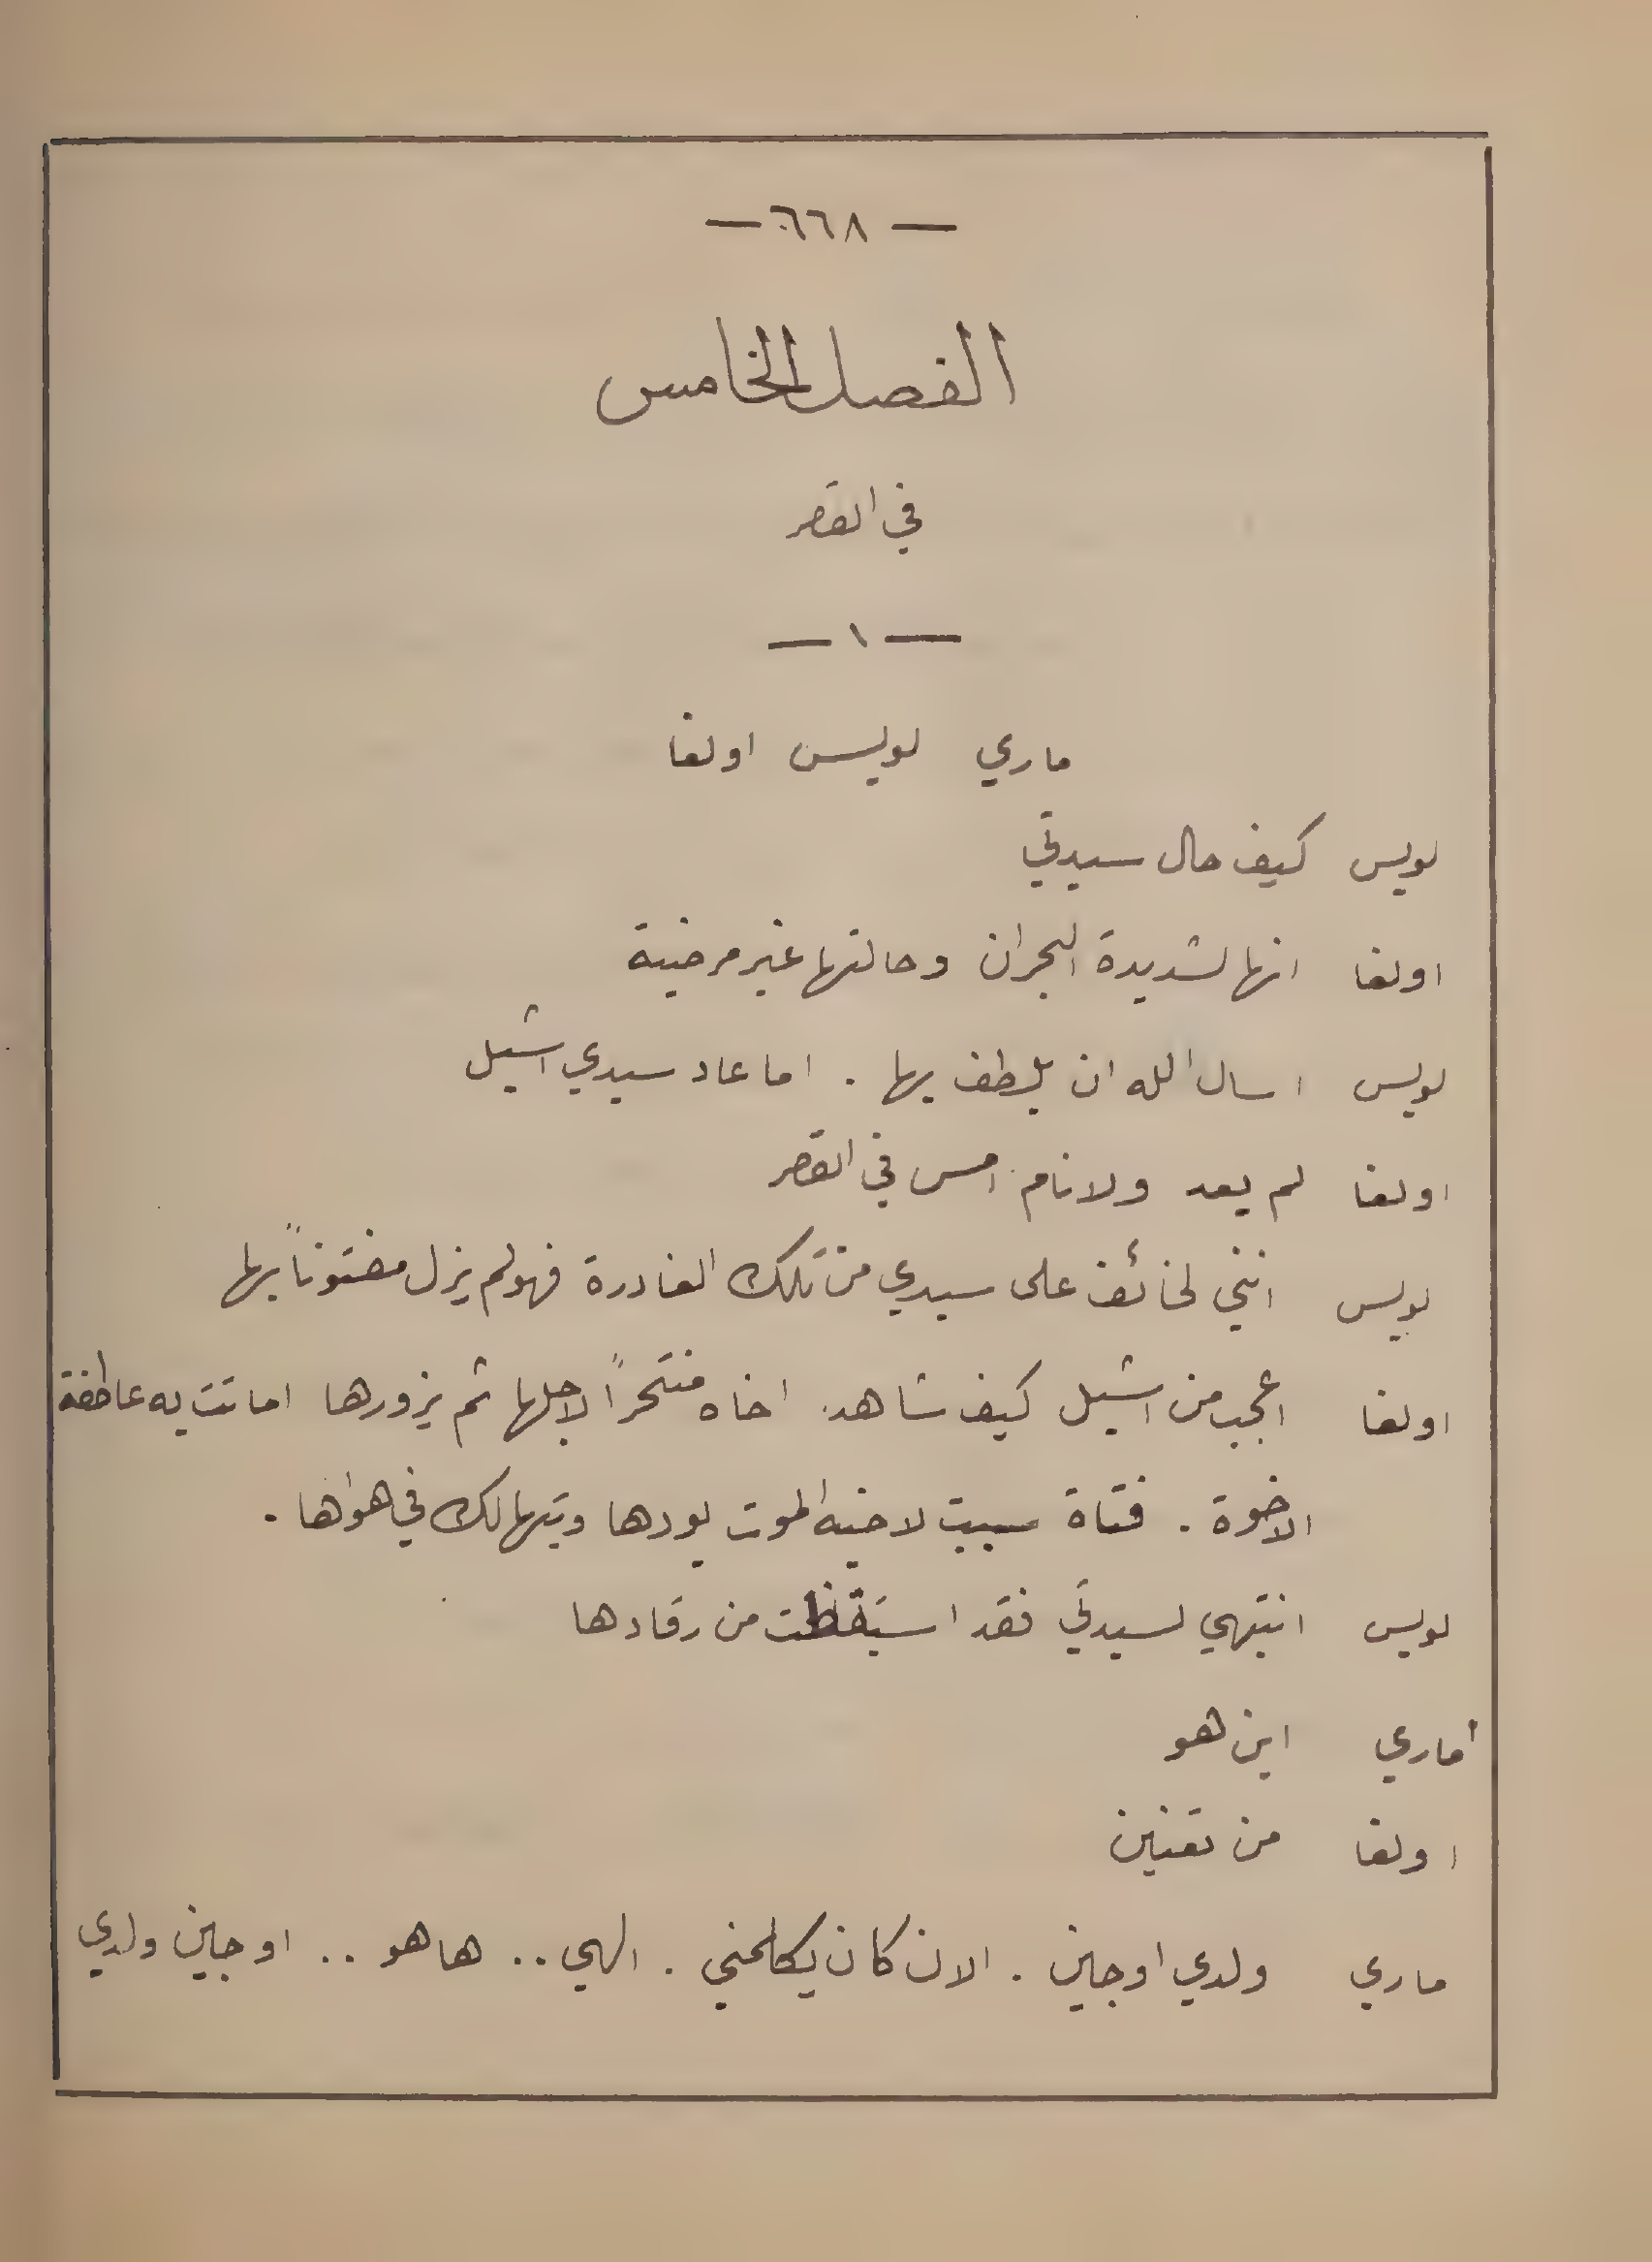 — ٦٦٨ —
الفصل الخامس
في القصر
— ١ —
ماري لويس اولغا
لويس كيف حال سيدتي
اولغا انها لشديدة البحران وحالتها غير مرضية
لويس اسال الله ان يلطف بها . اما عاد سيدي اشيل
اولغا لم يعد ولا نام امس في القصر
لويس انني لخائف على سيدي من تلك الغادرة فهو لم يزل مفتوناً بها
اولغا اعجب من اشيل كيف شاهد اخاه منتحراً لاجلها ثم يزورها اما تت به عاطفة
الاخوة . فتاة سببت لاخيه الموت يودها ويتهالك في هواها .
لويس انتبهي لسيدتي فقد استيقظت من رقادها
ماري اين هو
اولغا من تعنين
ماري ولدي اوجين . الان كان يكلمني . الهي .. ها هو .. اوجين ولدي